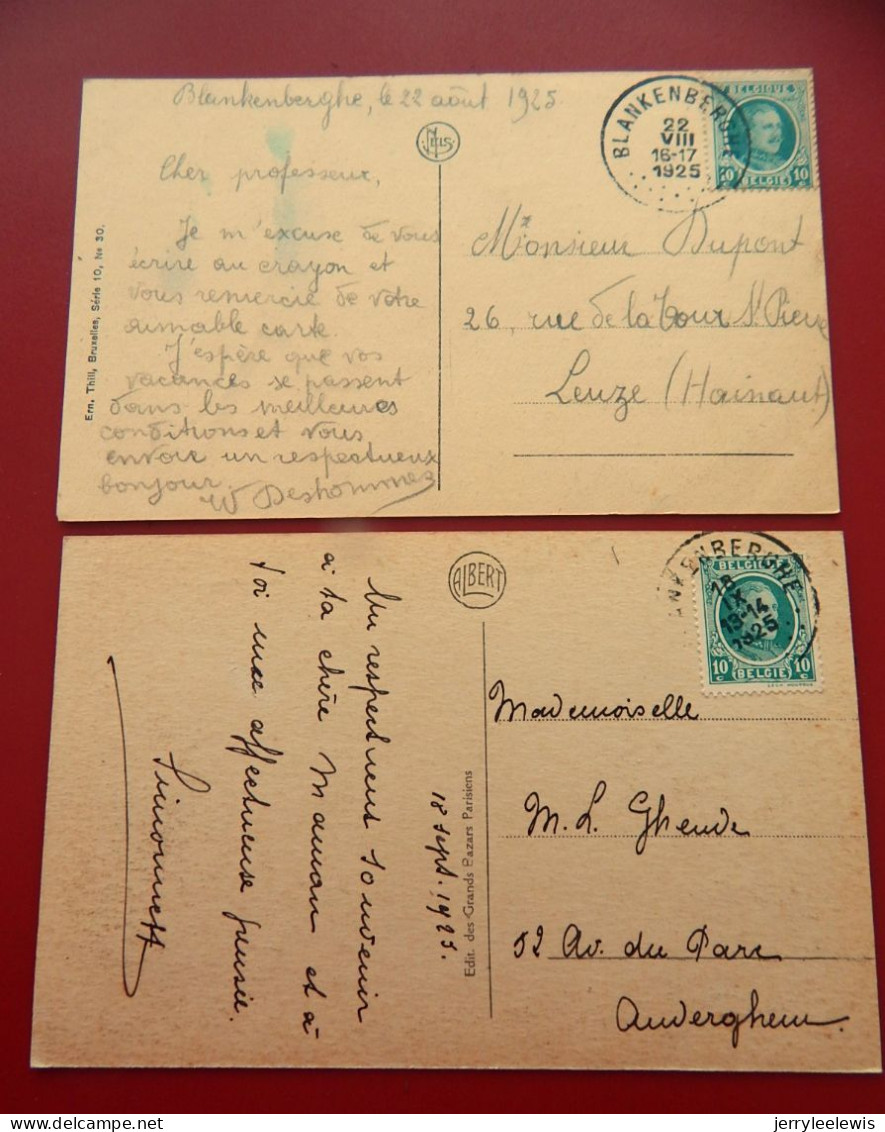 Blankenberghe, le 22 août 1925
NELS
BLANKENBERGHE
22
VIII
16-17
1925
BELGIQUE
10 10
BELGIE
Cher professeur,
Je m'excuse de vous
écrire au crayon et
vous remercie de votre
aimable carte.
J'espère que vos
vacances se passent
dans les meilleures
conditions et vous
envoie un respectueux
bonjour.
W Deshommes
Ern. Thill, Bruxelles, Série 10, No 30.
Monsieur Dupont
26, rue de la Tour St Pierre
Leuze (Hainaut)
ALBERT
ANKENBERGHE
18
IX
13-14
1925
BELGIQUE
10c 10c
BELGIE
Un respectueux souvenir
à ta chère Maman et à
toi une affectueuse pensée.
Simonnette
18 sept. 1925.
Edit. des Grands Bazars Parisiens
Mademoiselle
M. L. Gheude
52 Av. du Parc
Auderghem.
delcampe.net
jerryleelewis